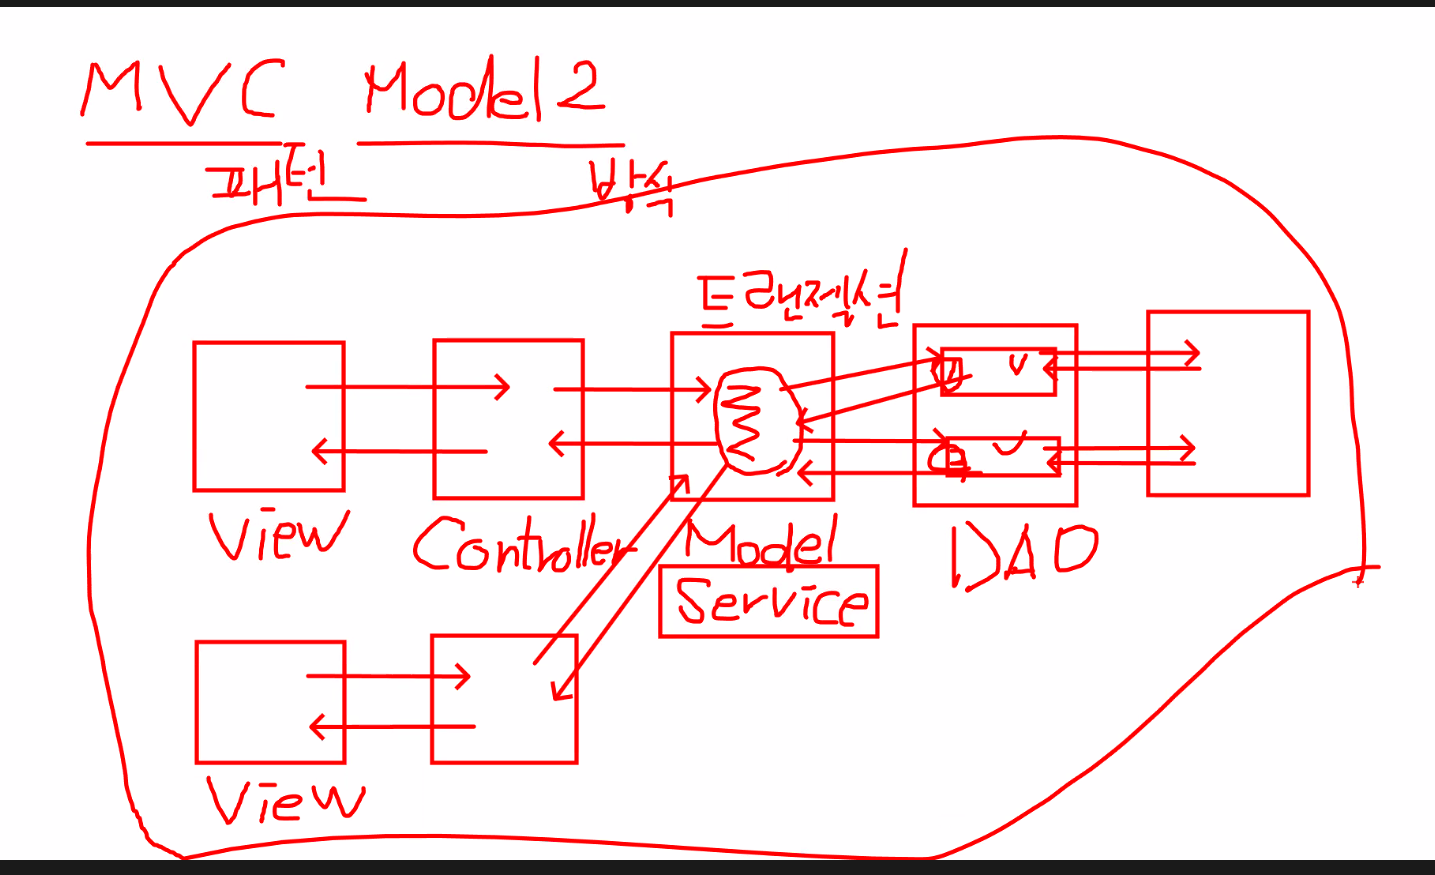 MVC Model 2
패턴 방식
트랜잭션
View Controller Model DAO
Service
View